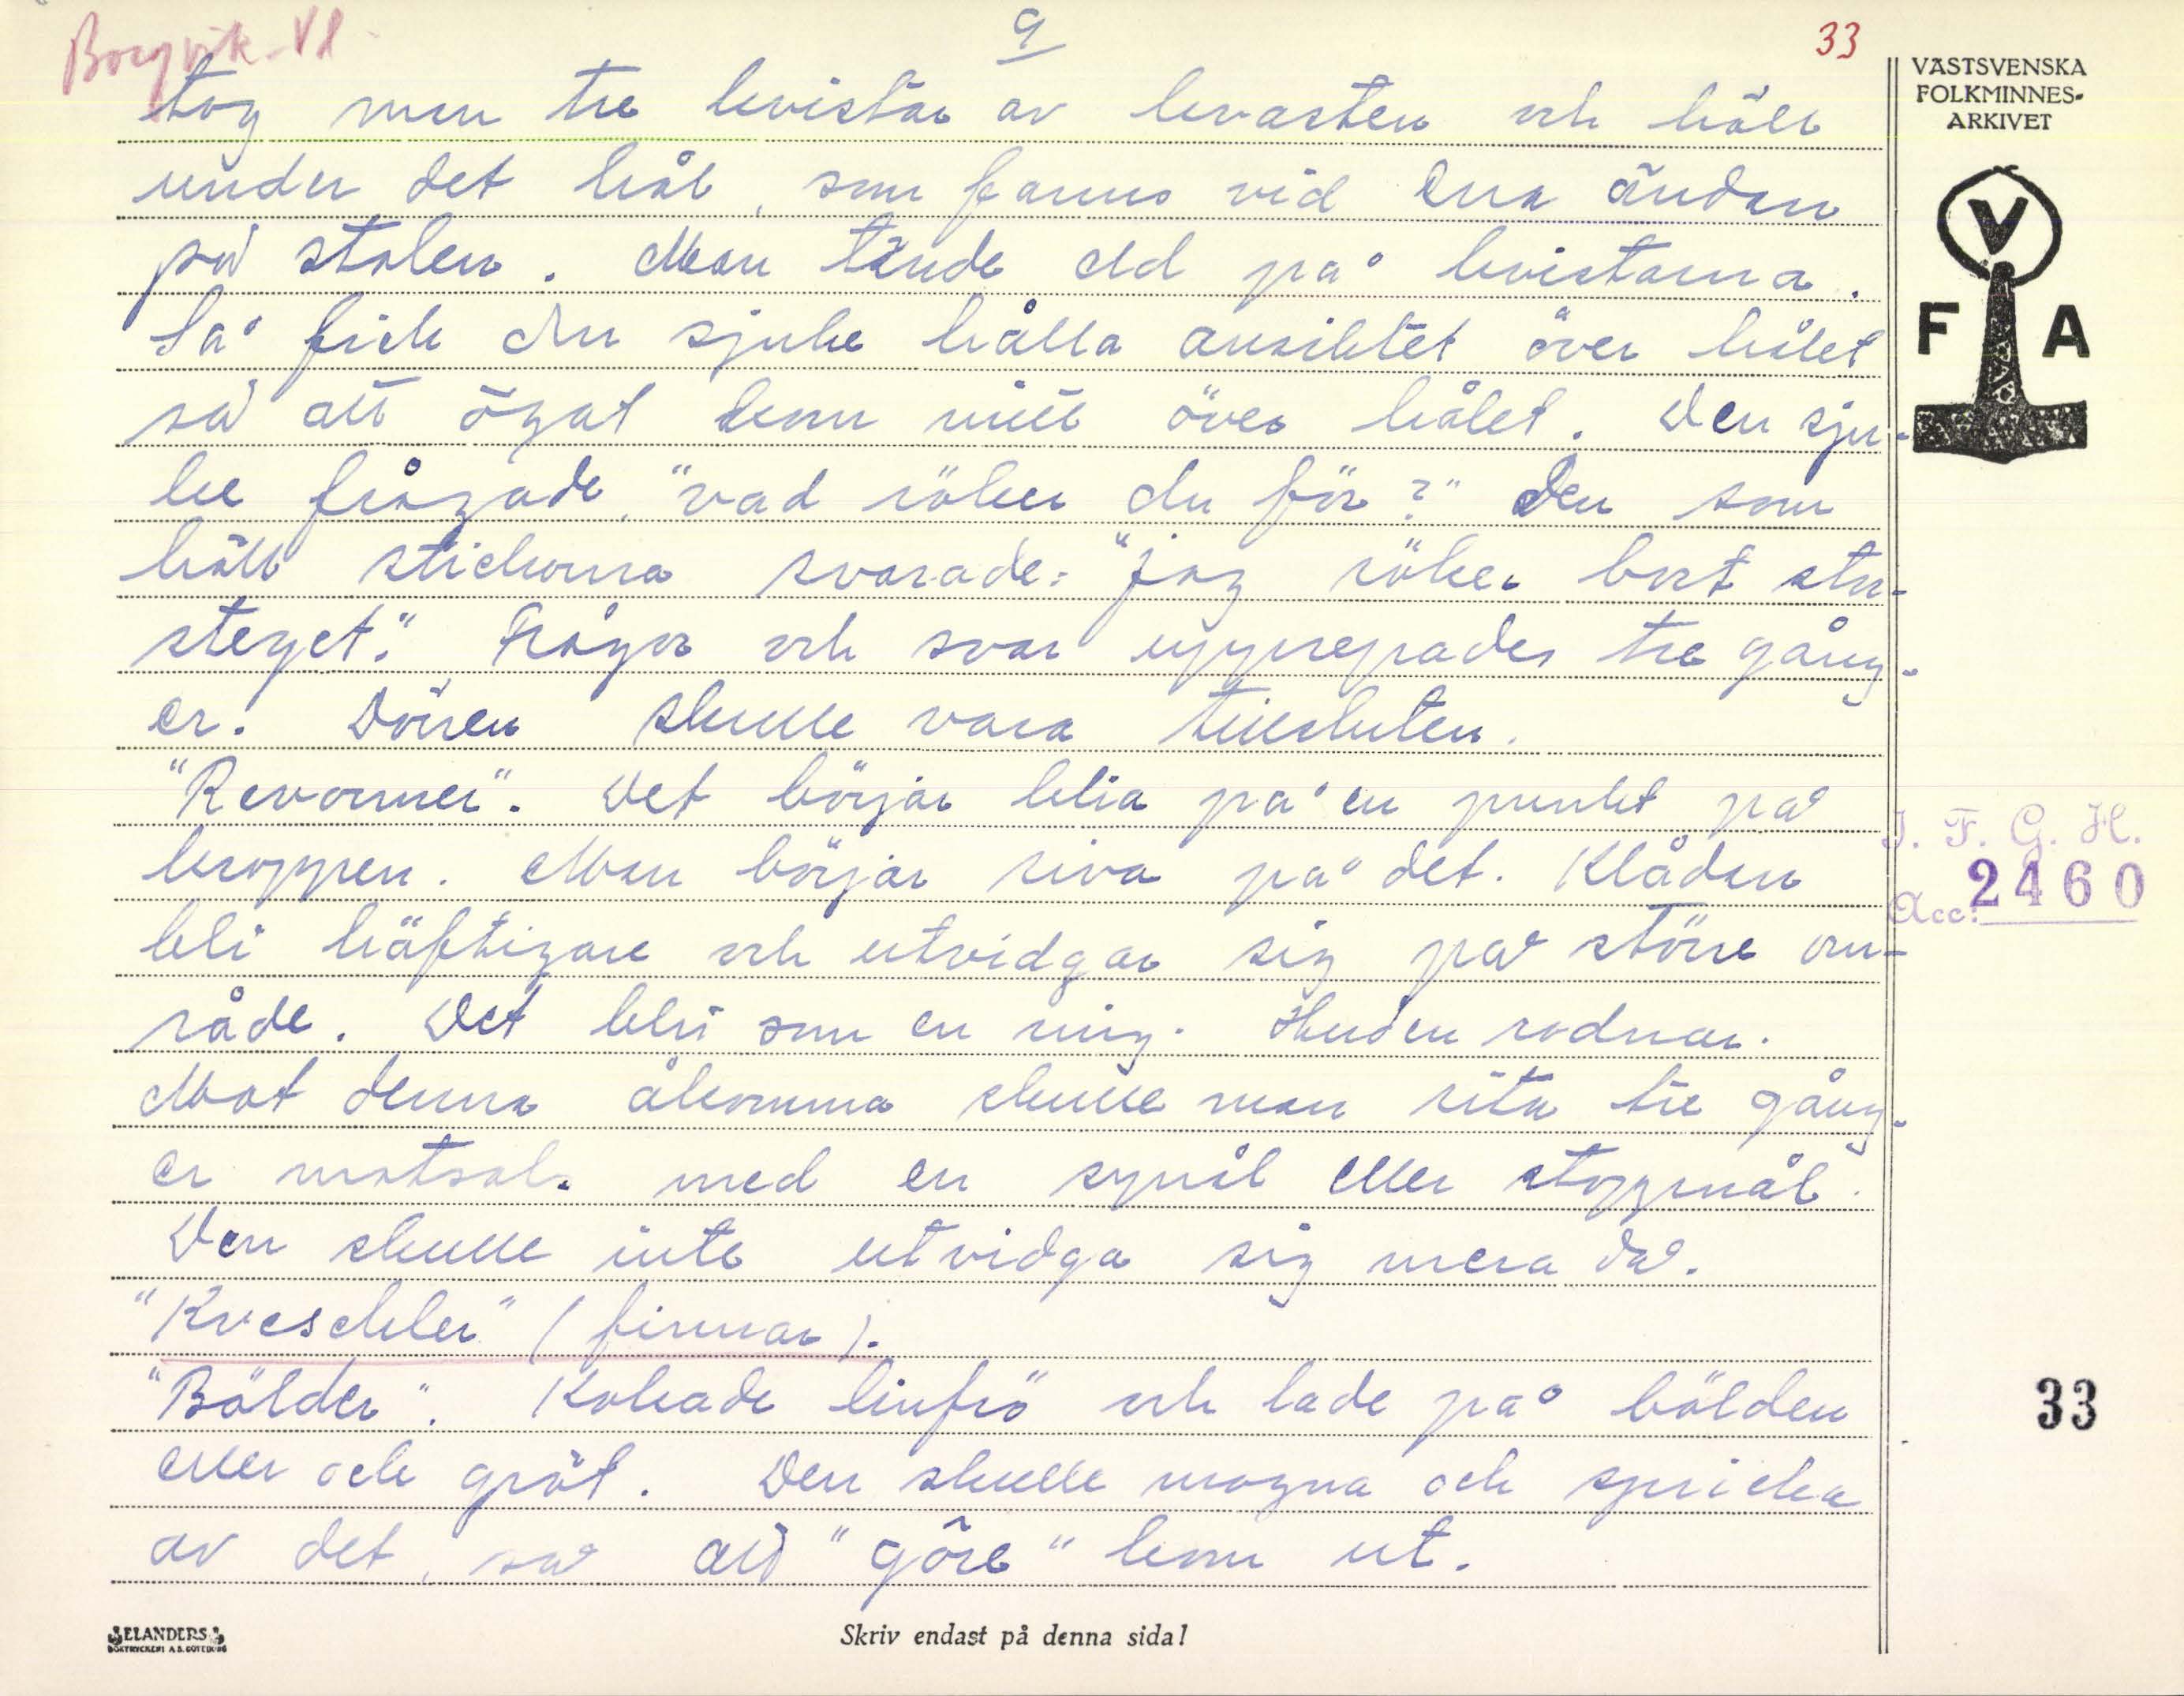 Borgvik Vl
9
33
tog man tre kvistar av kvasten och höll
under det hål, som fanns vid ena ändan
på stolen. Man tände eld på kvistarna.
Så fick den sjuke hålla ansiktet över hålet
så att ögat kom mitt över hålet. Den sju-
ke frågade, "vad röker du för?" Den som
höll stickorna svarade: "jag röker bort stu-
steget." Frågor och svar upprepades tre gång-
er. Dörren skulle vara tillsluten.
"Revormer". Det börjar klia på en punkt på
kroppen. Man börjar riva på det. Klådan
bli häftigare och utvidgar sig på större om-
råde. Det bli som en ring. Huden rodnar.
Mot denna åkomma skulle man rita tre gång-
er motsols med en synål eller stoppnål.
Den skulle inte utvidga sig mera då.
"Kvesekler" (finnar).
"Bölder". Kokade linfrö och lade på bölden
eller och gröt. Den skulle mogna och spricka
av det, så att "göre" kom ut.
VÄSTSVENSKA
FOLKMINNES-
ARKIVET
V
F A
I. F. G. H.
Acc: 2460
33
ELANDERS
BOKTRYCKERI A.B. GÖTEBORG
Skriv endast på denna sida!